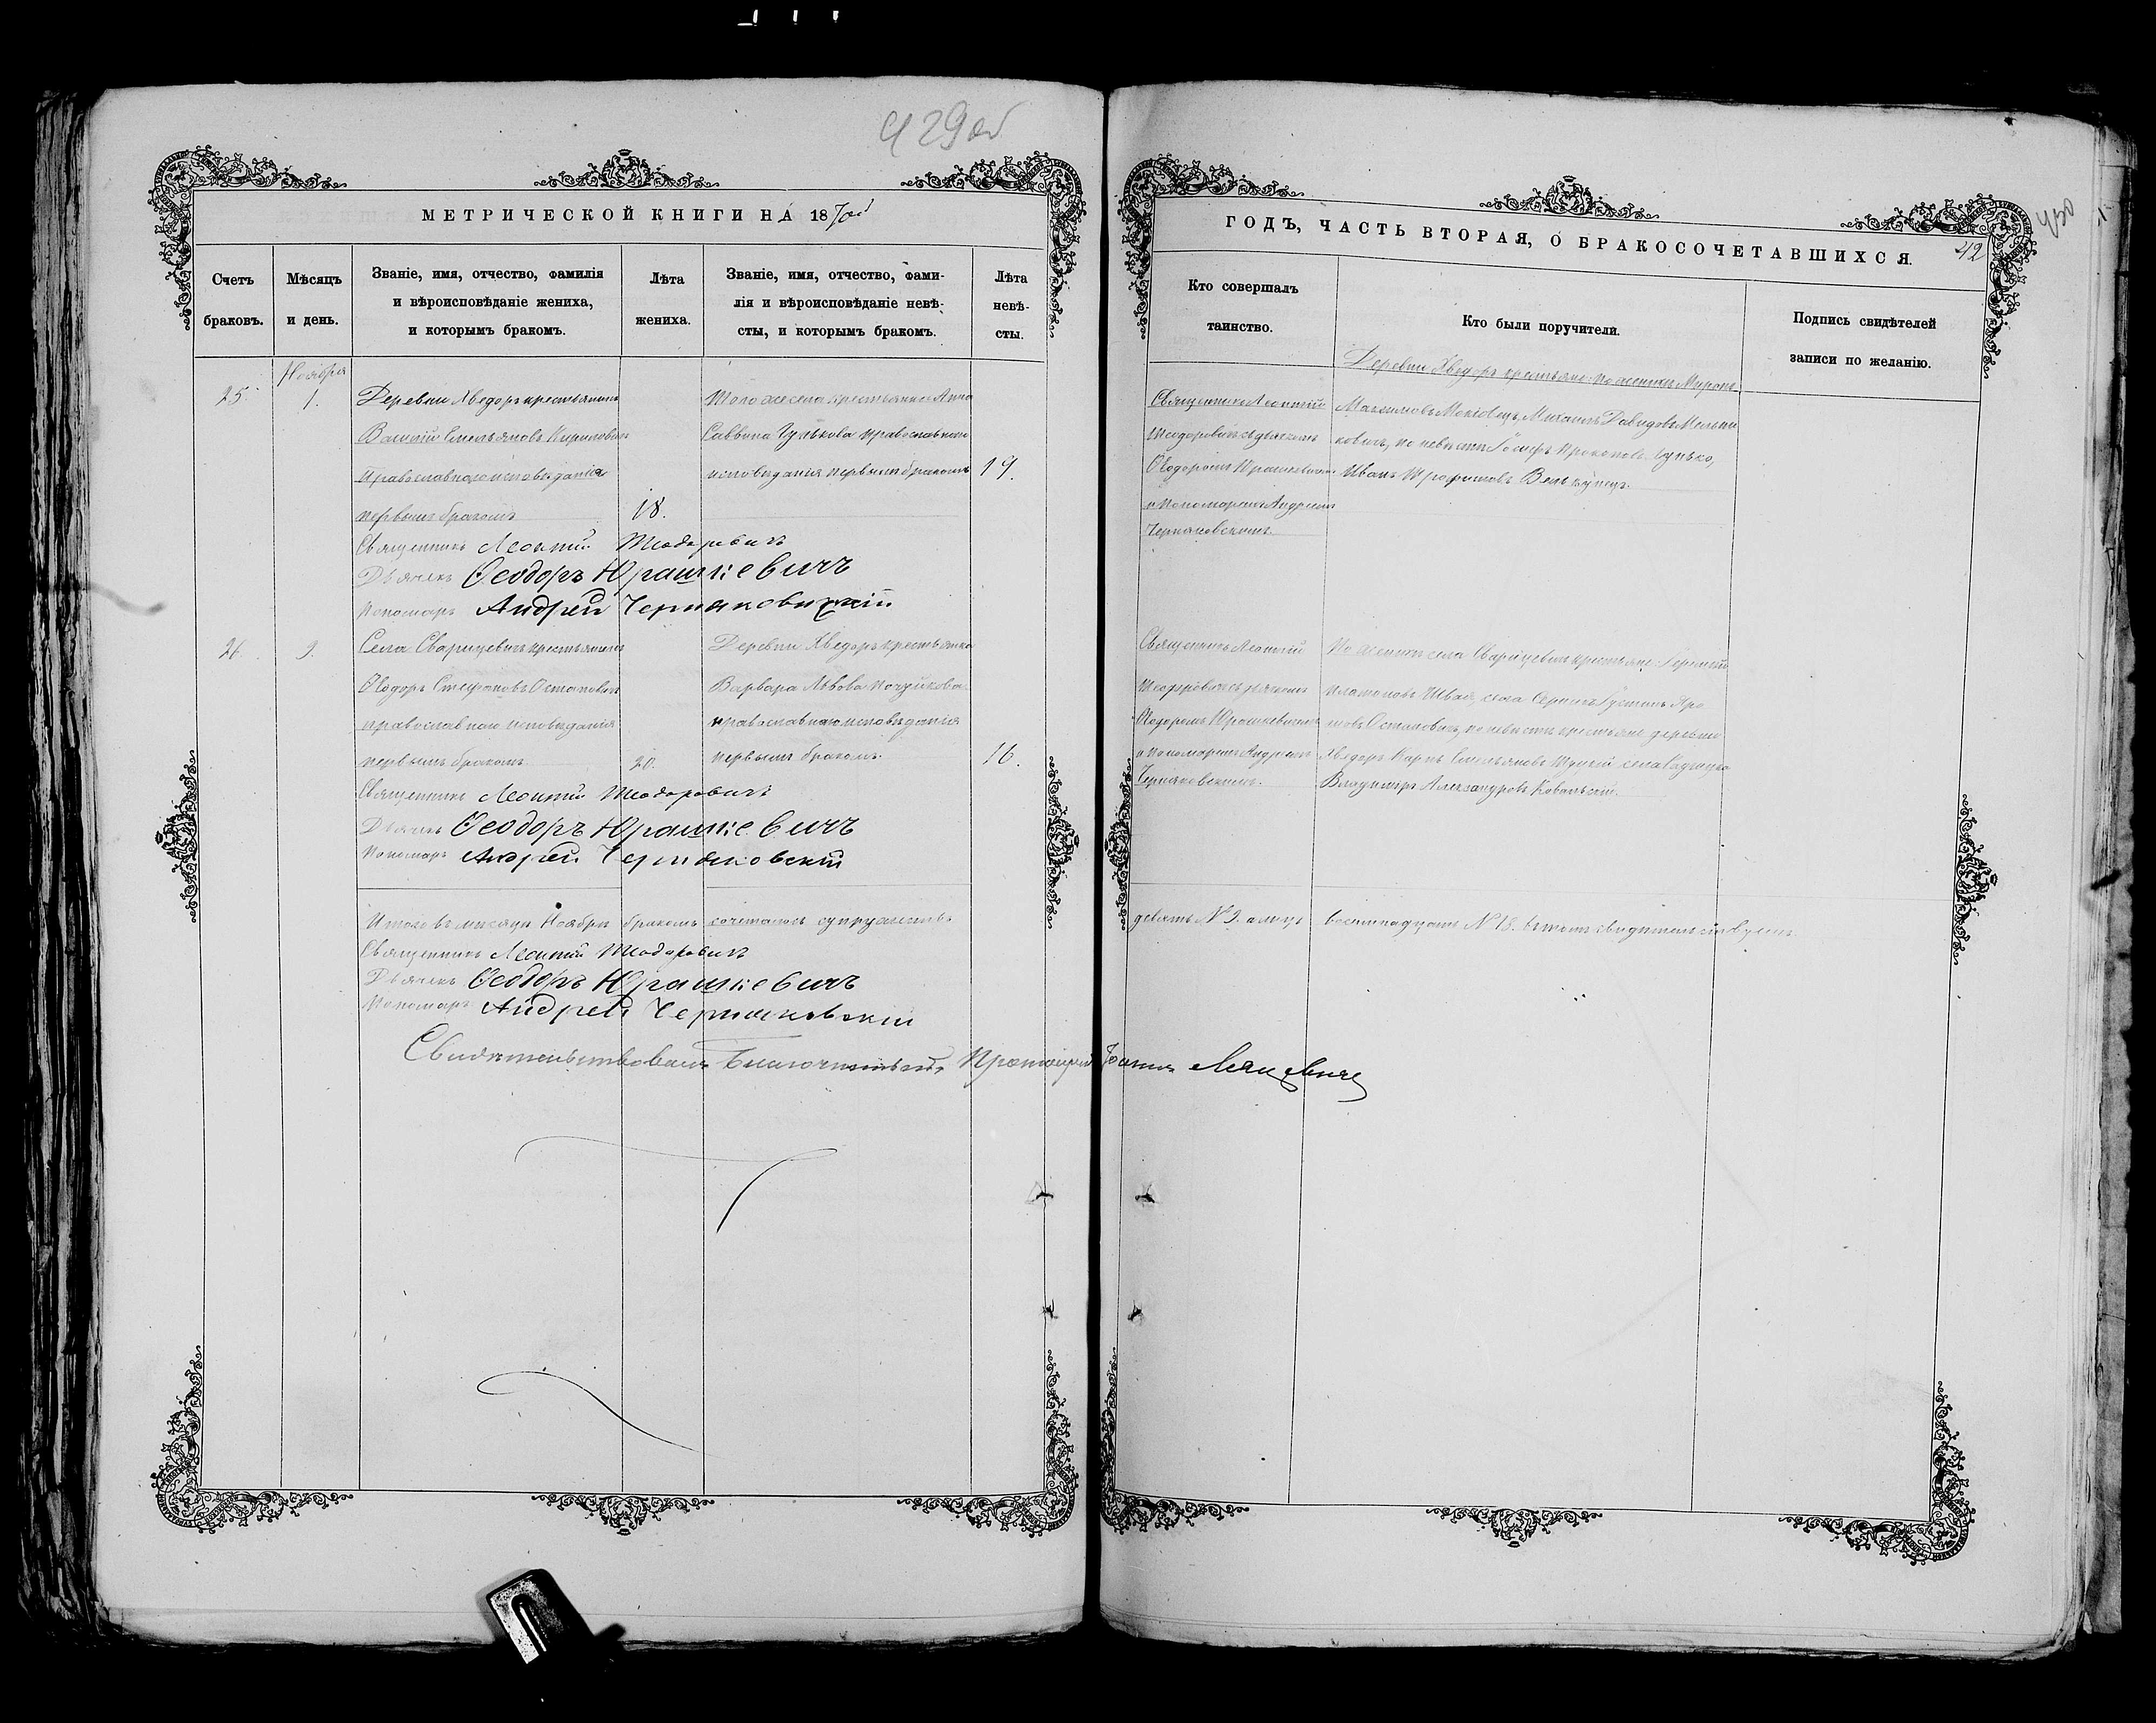 429об
МЕТРИЧЕСКОЙ КНИГИ НА 1870й
Счетъ браковъ.
Мѣсяцъ и день.
Званіе, имя, отчество, фамилія и вѣроисповѣданіе жениха, и которымъ бракомъ.
Лѣта жениха.
Званіе, имя, отчество, фами-
лія и вѣроисповѣданіе невѣ-
сты, и которымъ бракомъ.
Лѣта
невѣ-
сты.
Ноября
25. 1. Деревни Хведоръ крестьянинъ
Василій Емельяновъ Кириловичъ
православнаго исповѣданія
первымъ бракомъ
18.
крестьянка Анна
Саввина Гунькова православнаго
исповѣданія первымъ бракомъ 19.
Священникъ Леонтій Теодоровичъ
Дьячекъ Ѳеодоръ Юрашкевичъ
Пономарь Андрей Черняковскій
26. 9. Села Сварицевичъ крестьянинъ
Ѳеодоръ Стефановъ Остаповичъ
православнаго исповѣданія
первымъ бракомъ 20.
Деревни Хведоръ крестьянка
Варвара Львова
православнаго исповѣданія
первымъ бракомъ. 16.
Священникъ Леонтій Теодоровичъ
Дьячекъ Ѳеодоръ Юрашкевичъ
Пономарь Андрей Черняковскій
Итого въ мѣсяцѣ Ноябрѣ бракомъ сочеталось супружествъ
Священникъ Леонтій Теодоровичъ
Дьячекъ Ѳеодоръ Юрашкевичъ
Пономарь Андрей Черняковскій
Свидѣтельствовалъ Благочинный Протоіерей Іоаннъ
430
42
ГОДЪ, ЧАСТЬ ВТОРАЯ, О БРАКОСОЧЕТАВШИХСЯ.
Кто совершалъ
таинство.
Кто были поручители.
Подпись свидѣтелей
записи по желанію.
Священникъ Леонтій
Теодоровичъ съ дьячкомъ
Ѳеодоромъ Юрашкевичемъ
и пономаремъ Андреемъ
Черняковскимъ.
Деревни Хведоръ крестьяне: по женихѣ Миронъ
Максимовъ Михаилъ Давидовъ Мельни
ковичъ, по невѣстѣ Прокоповъ Гунько,
Иванъ Трофимовъ
Священникъ Леонтій
Теодоровичъ съ дьячкомъ
Ѳеодоромъ Юрашкевичемъ
и пономаремъ Андреемъ
Черняковскимъ.
По женихѣ села Сварицевичъ крестьяне:
Платоновъ села
Остаповичъ, по невѣстѣ крестьяне деревни
Хведоръ Карпъ Емельяновъ села
Владимиръ Александровъ Ковальскій.
девять №9. а лицъ восемнадцать №18. въ томъ свидѣтельствуемъ.